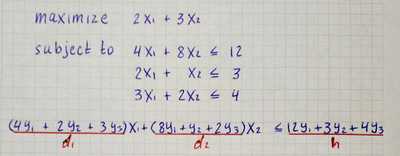 maximize 2x₁ + 3x₂
subject to 4x₁ + 8x₂ ≤ 12
2x₁ + x₂ ≤ 3
3x₁ + 2x₂ ≤ 4
(4y₁ + 2y₂ + 3y₃)x₁+(8y₁+y₂+2y₃)x₂ ≤ 12y₁+3y₂+4y₃
d₁ d₂ h